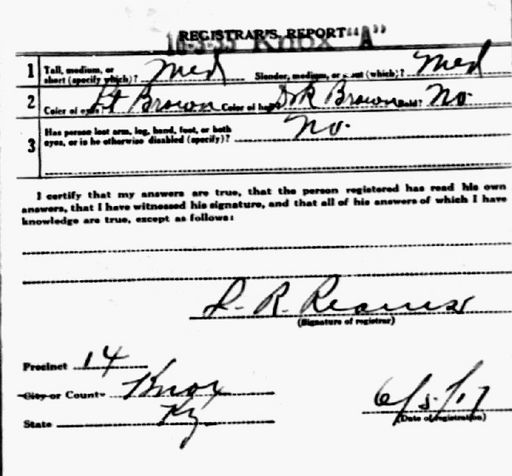 REGISTRAR'S REPORT
16-3-33 Knox "A"
1 Tall, medium, or short (specify which)? Med Slender, medium, or stout (which)? Med
2 Color of eyes? Lt Brown Color of hair? Drk Brown Bald? No
3 Has person lost arm, leg, hand, foot, or both eyes, or is he otherwise disabled (specify)? No.
I certify that my answers are true, that the person registered has read his own
answers, that I have witnessed his signature, and that all of his answers of which I have
knowledge are true, except as follows:
(Signature of registrar)
Precinct 14
City or County Knox
State Ky
6/5/17
(Date of registration)